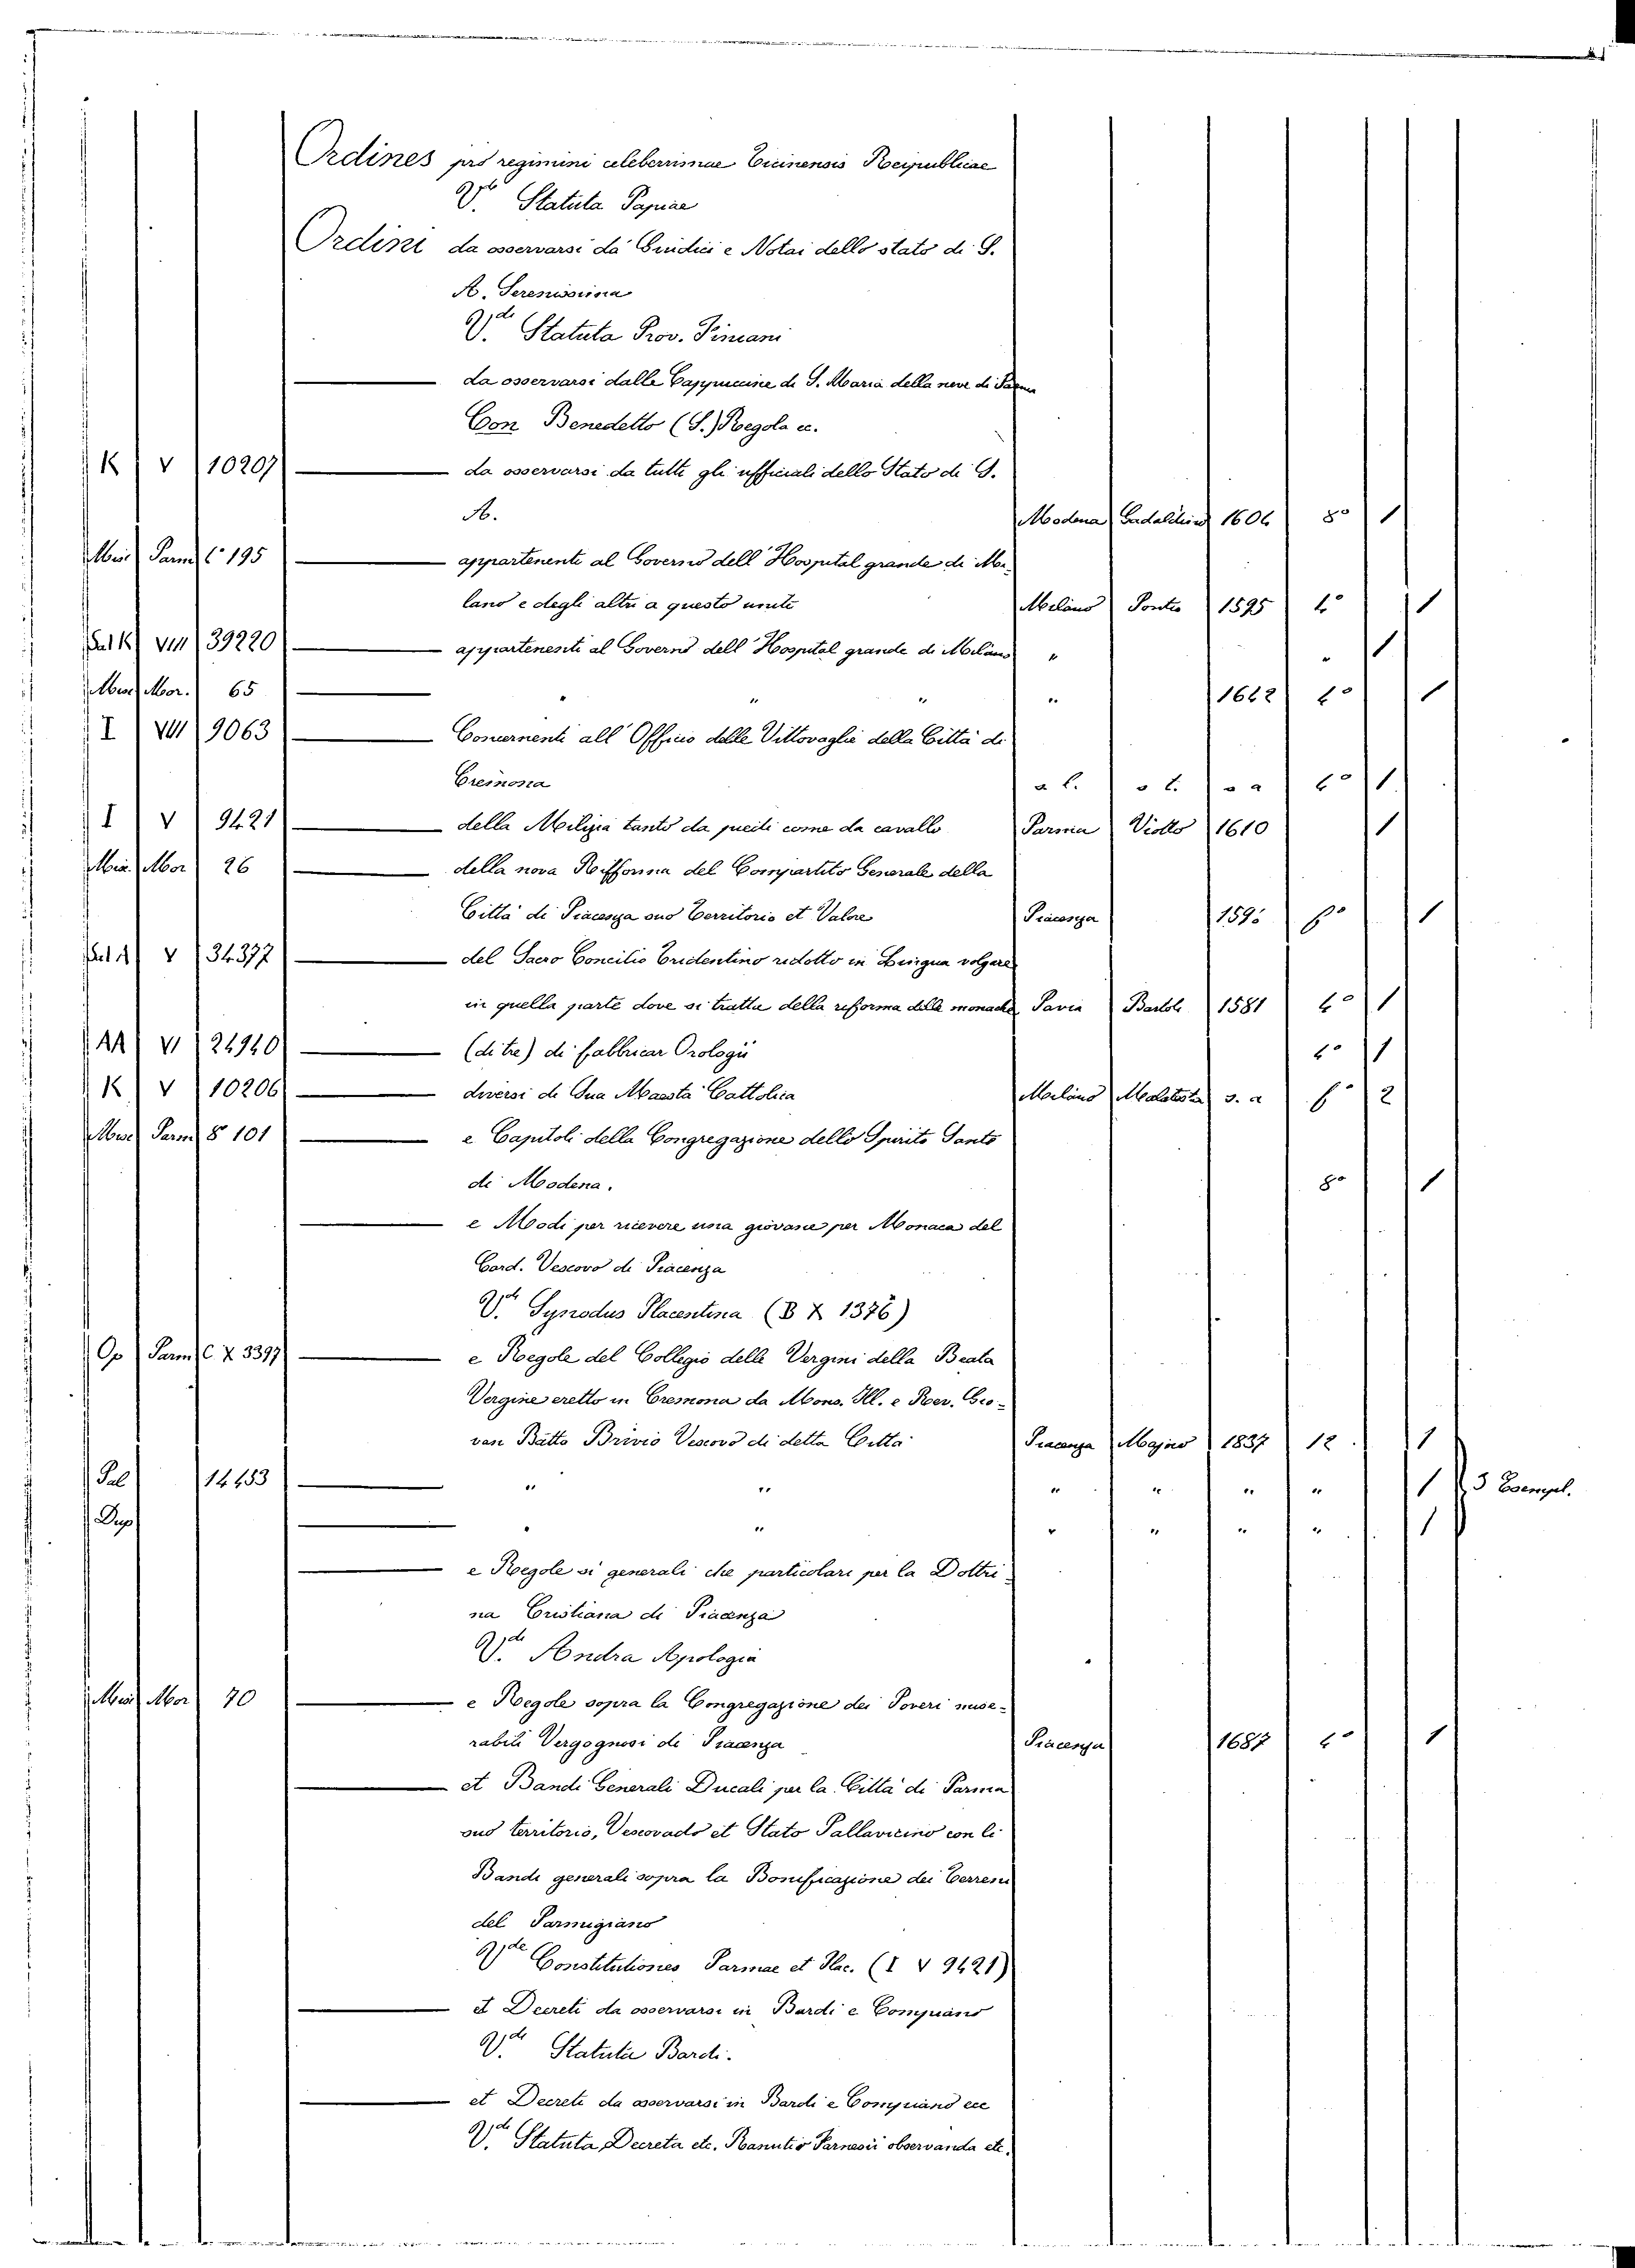 Ordines pro regimini celeberrimae Ticinensis Reipublicae
V. Statuta Papiae
Ordini da osservarsi da Giudici e Notai dello stato di S.
A. Serenissima
V.de Statuta Prov. Pimani
da osservarsi dalle Cappuccine di S. Maria della neve di Parma
Con Benedetto (S.) Regola ec.
K V 10207 da osservarsi da tutti gli ufficiali dello Stato di S.
A. Modena 1604 8° 1
Misc Parm 6° 195 appartenenti al Governo dell' Hospital grande di Mi-
lano e degli altri a questo uniti Milano Pontio 1595 4° 1
Pal K VIII 39220 appartenenti al Governo dell' Hospital grande di Milano " " 1
Misc Mor. 65 " " " " 1642 4° 1
I VIII 9063 Concernenti all' Officio delle Vittovaglie della Città di
Cremona a l. s t. s a 4° 1
I V 9421 della Milizia tanto da piedi come da cavallo Parma Viotto 1610 1
Mis. Mor 26 della nova Rifforma del Compartito Generale della
Città di Piacenza suo Territorio et Valore Piacenza 1 6° 1
V 34377 del Sacro Concilio Tridentino ridotto in Lingua volgare
in quella parte dove si tratta della reforma delle monache Pavia Bartoli 1581 4° 1
AA VI 24940 (di tre) di fabbricar Orologii 4° 1
K V 10206 diversi di Sua Maestà Cattolica Milano Malatesta s. a 6° 2
Misc Parm 8° 101 e Capitoli della Congregazione dello Spirito Santo
di Modena. 8° 1
e Modi per ricevere una giovane per Monaca del
Card. Vescovo di Piacenza
V.de Synodus Placentina (B X 1376)
Op Parm C X 3397 e Regole del Collegio delle Vergini della Beata
Vergine eretto in Cremona da Mons. Ill. e Rev. Gio-
van Batta Brivio Vescovo di detta Città Piacenza Majno 1837 12. 1
Pal 14453 " " " " " " 1 3 Esempl.
Dup " " " " " " 1
e Regole si generali che particolari per la Dottri-
na Cristiana di Piacenza
V.de Andra Apologia
Misc Mor 70 e Regole sopra la Congregazione dei Poveri mise-
rabili Vergognosi di Piacenza Piacenza 1687 4° 1
et Bandi Generali Ducali per la Città di Parma
suo territorio, Vescovado et Stato Pallavicino con li
Bandi generali sopra la Bonificazione dei Terreni
del Parmigiano
V.de Constitutiones Parmae et Plac. (I V 9421)
et Decreti da osservarsi in Bardi e Compiano
V.de Statuta Bardi.
et Decreti da osservarsi in Bardi e Compiano ecc
V.de Statuta Decreta etc. Ranutio Farnesii observanda etc.